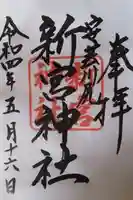 奉拝
安芸川尻
新宮神社
令和四年五月十六日